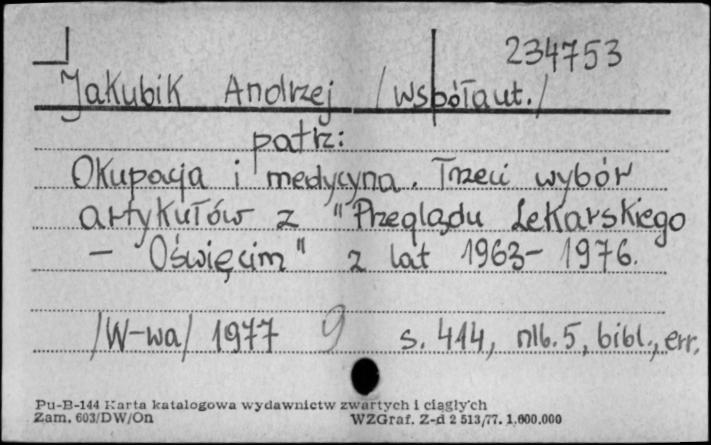 234753
Jakubik Andrzej /współaut./
patrz:
Okupacja i medycyna. Trzeci wybór
artykułów z "Przeglądu Lekarskiego
– Oświęcim" z lat 1963–1976.
/W-wa/ 1977 9 s. 414, nlb. 5, bibl., err.
Pu-B-144 Karta katalogowa wydawnictw zwartych i ciągłych
Zam. 603/DW/On WZGraf. Z-d 2 513/77. 1.600.000